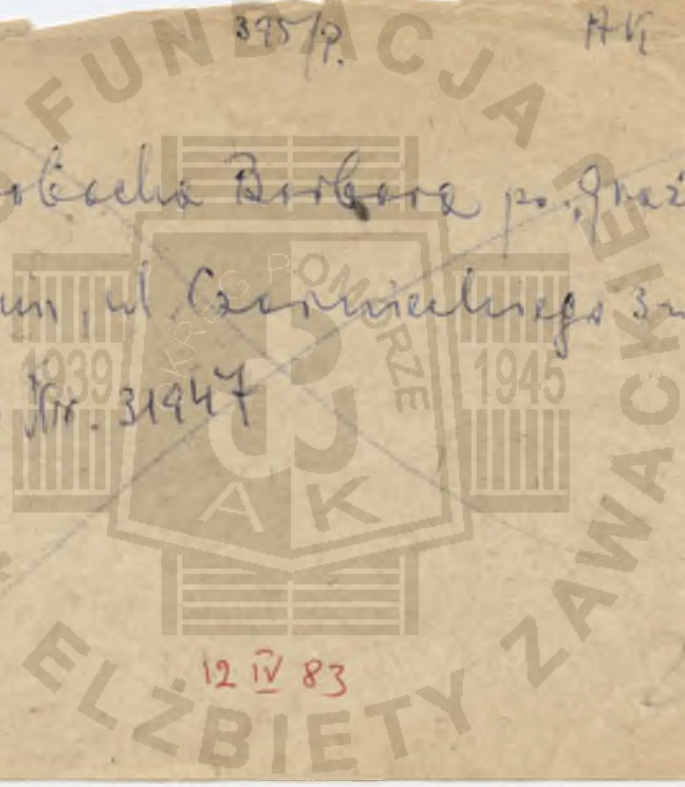 395/P.
Barbara ps. "Graż
ul. Czarnieckiego 3
Nr. 31947
12 IV 83
FUNDACJA
ELŻBIETY ZAWACKIEJ
OKRĘG POMORZE
1939
1945
AK